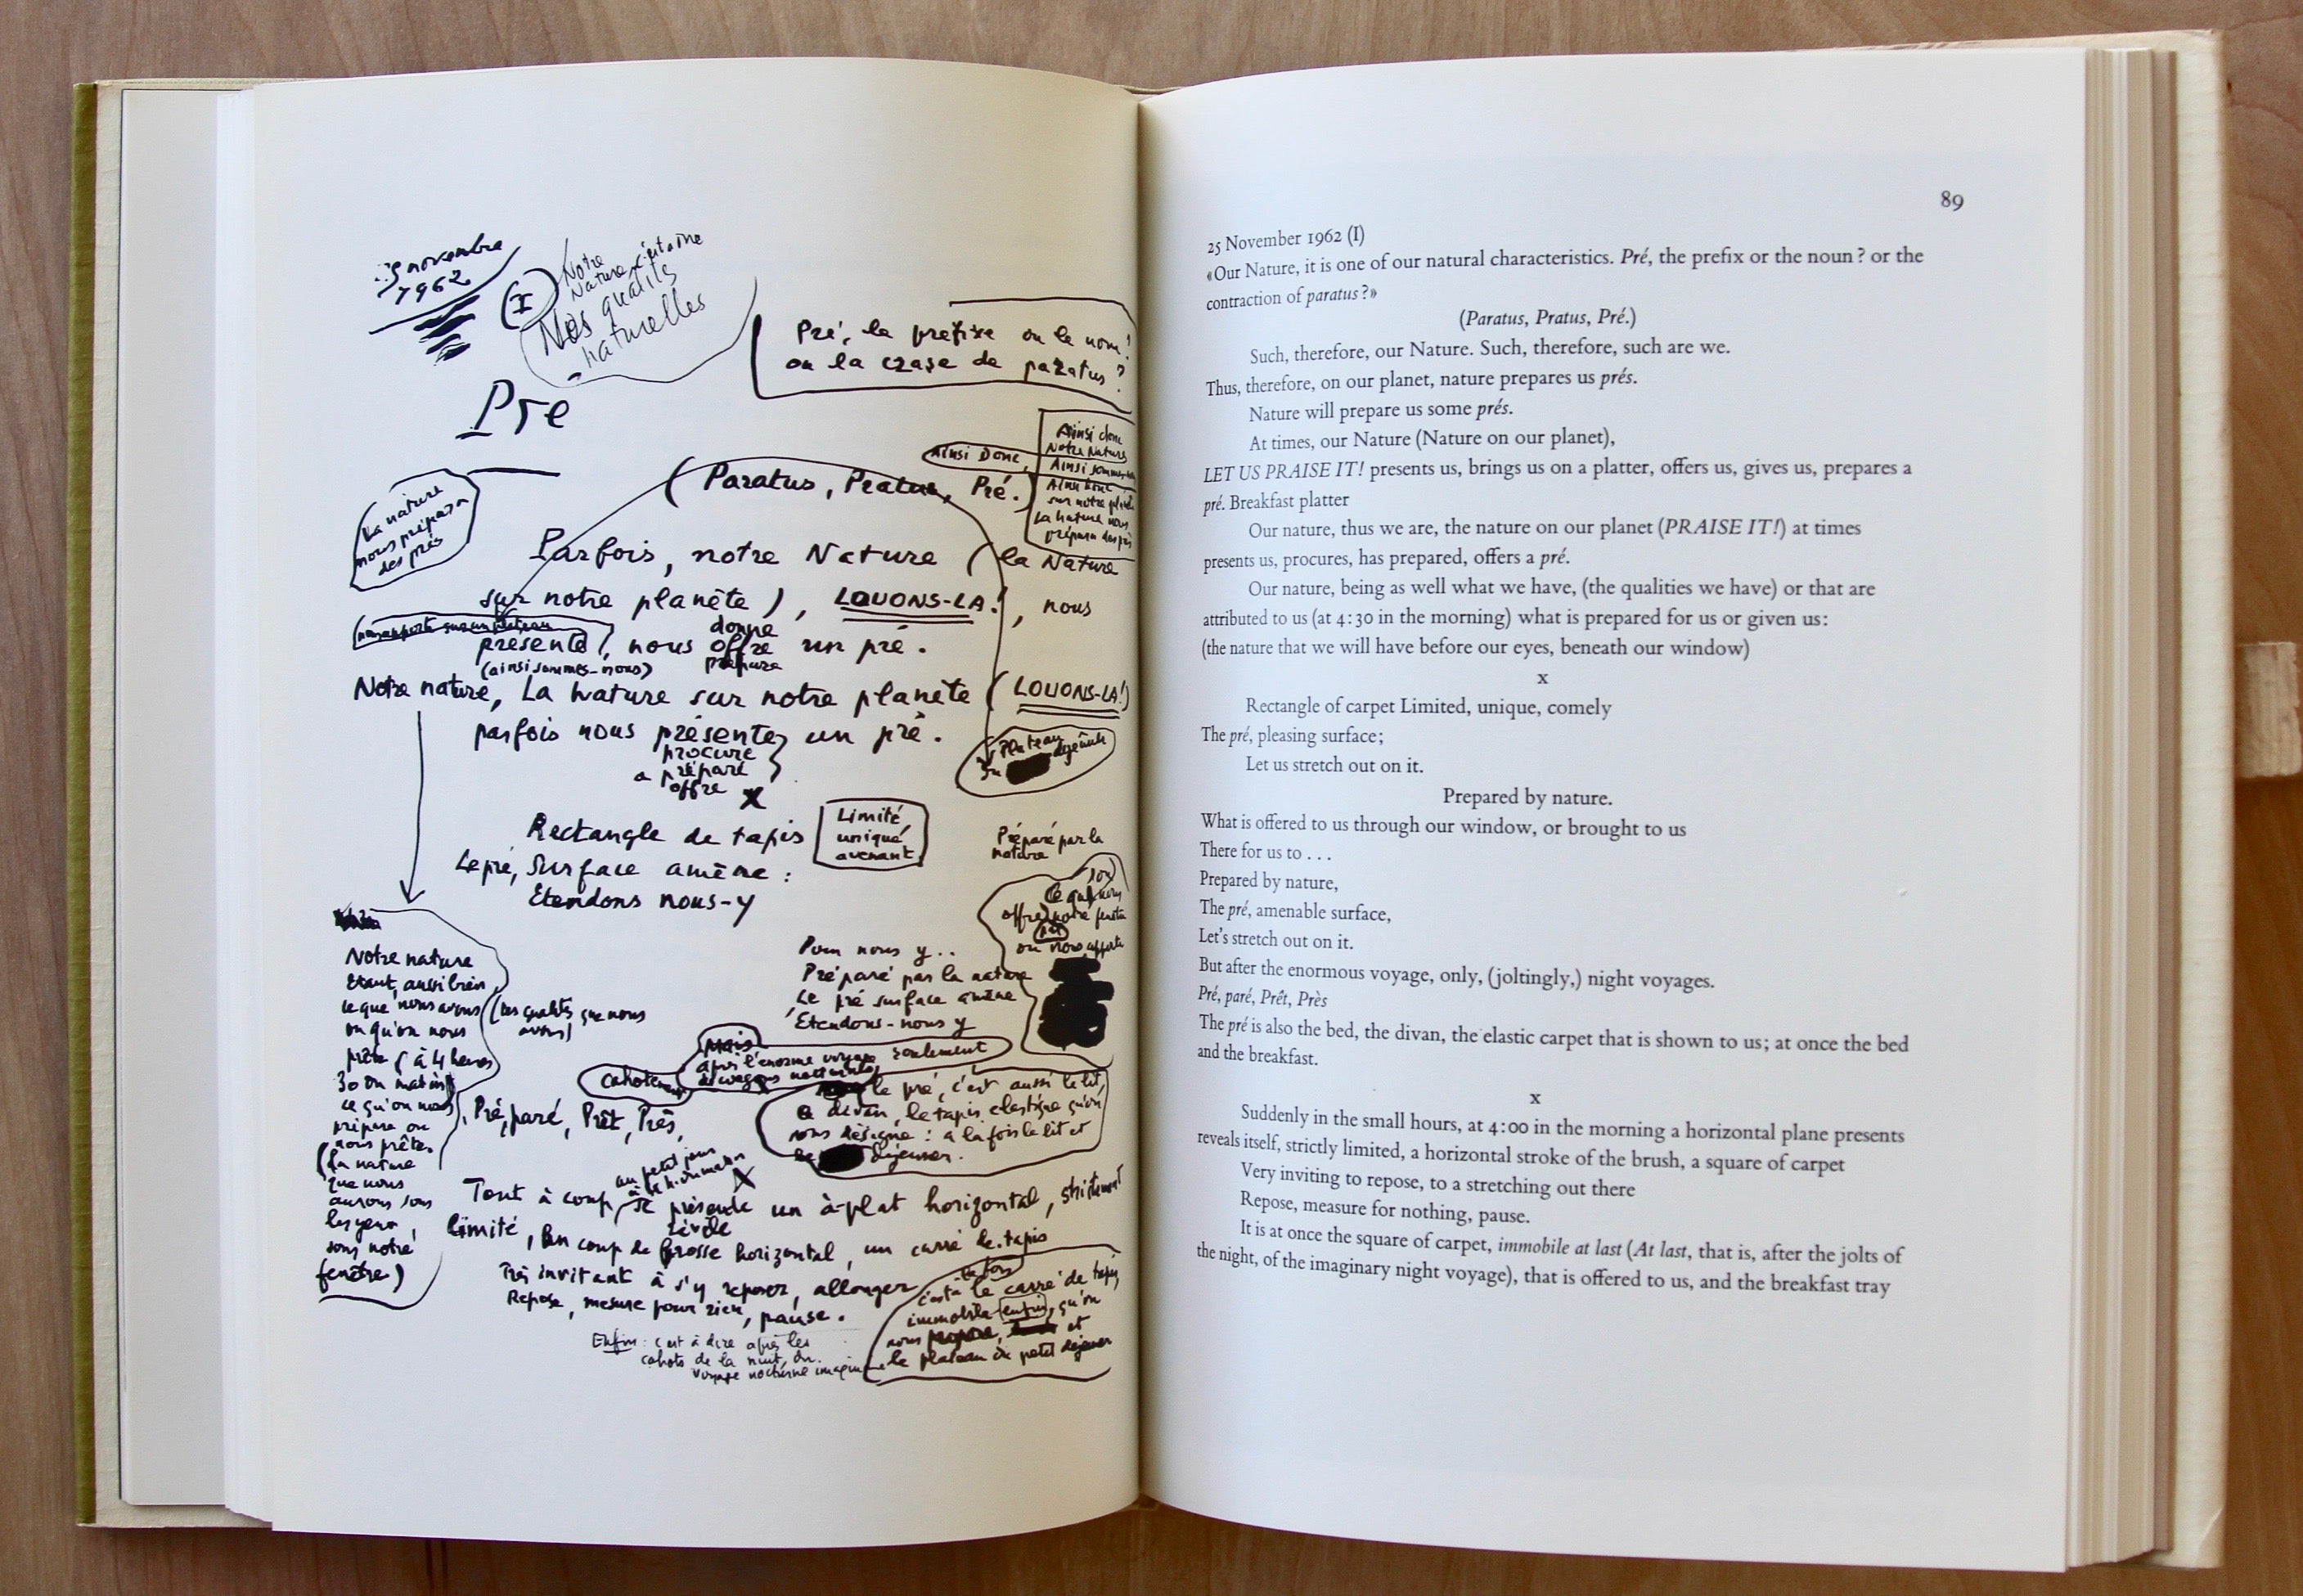 25 novembre
1962
(I)
Notre
Nature, c'était
Nos qualités
naturelles
Pré, le préfixe ou le nom?
ou la crase de paratus?
Pré
Ainsi Donc,
Ainsi donc
Notre Nature
Ainsi sommes-nous
Ainsi donc
sur notre planète
la nature nous
prépara des prés
(Paratus, Pratus, Pré.)
La nature
nous prépara
des prés
Parfois, notre Nature (la Nature
sur notre planète), LOUONS-LA!, nous
nous apporte sur un plateau
donne
présente, nous offre un pré.
(ainsi sommes-nous)
prépare
Notre nature, La Nature sur notre planète (LOUONS-LA!)
parfois nous présente un pré.
procure
a préparé
offre
x
Plateau
du déjeuner
Rectangle de tapis
Limité
unique
avenant
Le pré, Surface amène:
Etendons nous-y
Préparé par la
nature
Ce que nous
offre notre fenêtre
ou nous apporte
Pour nous y..
Préparé par la nature
Le pré surface amène
Etendons-nous y
Notre nature
Etant, aussi bien
ce que nous avons (les qualités que nous
avons)
ou qu'on nous
prête (à 4 heures
30 du matin)
ce qu'on nous
prépare ou
nous prête.
(La nature
que nous
aurons sous
les yeux,
sous notre
fenêtre)
Mais
après l'énorme voyage, seulement
nocturnes
Pré, paré, Prêt, Près,
le pré, c'est aussi le lit,
le divan, le tapis élastique qu'on
nous désigne: à la fois le lit et
le déjeuner.
au petit jour
à 4 h. du matin
x
Tout à coup, se présente un à-plat horizontal, strictement
révèle
limité, Un coup de brosse horizontal, un carré de tapis
Très invitant à s'y reposer, allonger
Repose, mesure pour rien, pause.
à la fois
c'est le carré de tapis,
immobile enfin, qu'on
nous propose, et
le plateau du petit déjeuner
Enfin: c'est à dire après les
cahots de la nuit, du
voyage nocturne imaginaire
89
25 November 1962 (I)
«Our Nature, it is one of our natural characteristics. Pré, the prefix or the noun? or the
contraction of paratus?»
(Paratus, Pratus, Pré.)
Such, therefore, our Nature. Such, therefore, such are we.
Thus, therefore, on our planet, nature prepares us prés.
Nature will prepare us some prés.
At times, our Nature (Nature on our planet),
LET US PRAISE IT! presents us, brings us on a platter, offers us, gives us, prepares a
pré. Breakfast platter
Our nature, thus we are, the nature on our planet (PRAISE IT!) at times
presents us, procures, has prepared, offers a pré.
Our nature, being as well what we have, (the qualities we have) or that are
attributed to us (at 4:30 in the morning) what is prepared for us or given us:
(the nature that we will have before our eyes, beneath our window)
x
Rectangle of carpet Limited, unique, comely
The pré, pleasing surface;
Let us stretch out on it.
Prepared by nature.
What is offered to us through our window, or brought to us
There for us to . . .
Prepared by nature,
The pré, amenable surface,
Let's stretch out on it.
But after the enormous voyage, only, (joltingly,) night voyages.
Pré, paré, Prêt, Près
The pré is also the bed, the divan, the elastic carpet that is shown to us; at once the bed
and the breakfast.
x
Suddenly in the small hours, at 4:00 in the morning a horizontal plane presents
reveals itself, strictly limited, a horizontal stroke of the brush, a square of carpet
Very inviting to repose, to a stretching out there
Repose, measure for nothing, pause.
It is at once the square of carpet, immobile at last (At last, that is, after the jolts of
the night, of the imaginary night voyage), that is offered to us, and the breakfast tray